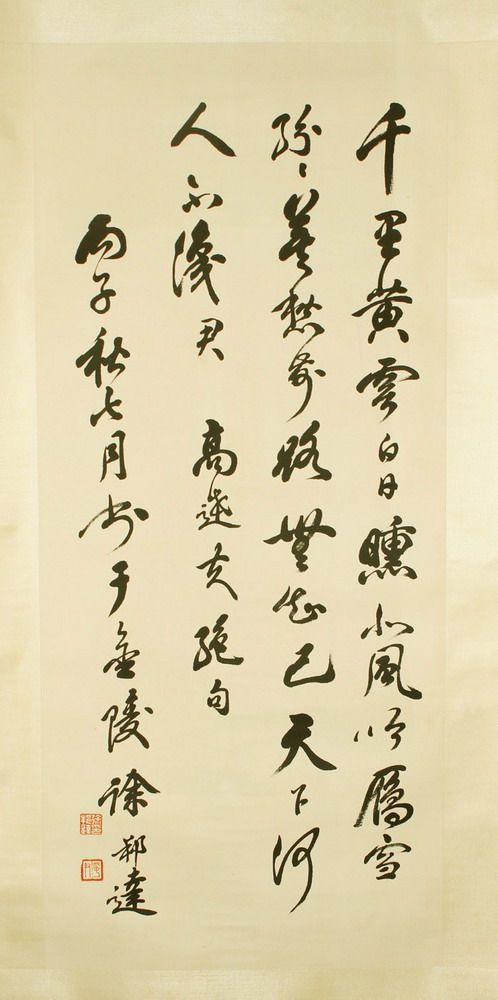 千里黄雲白日曛北風吹雁雪
紛〻莫愁前路無知己天下何
人不識君 高達夫絕句
丙子秋七月书于金陵徐邦達